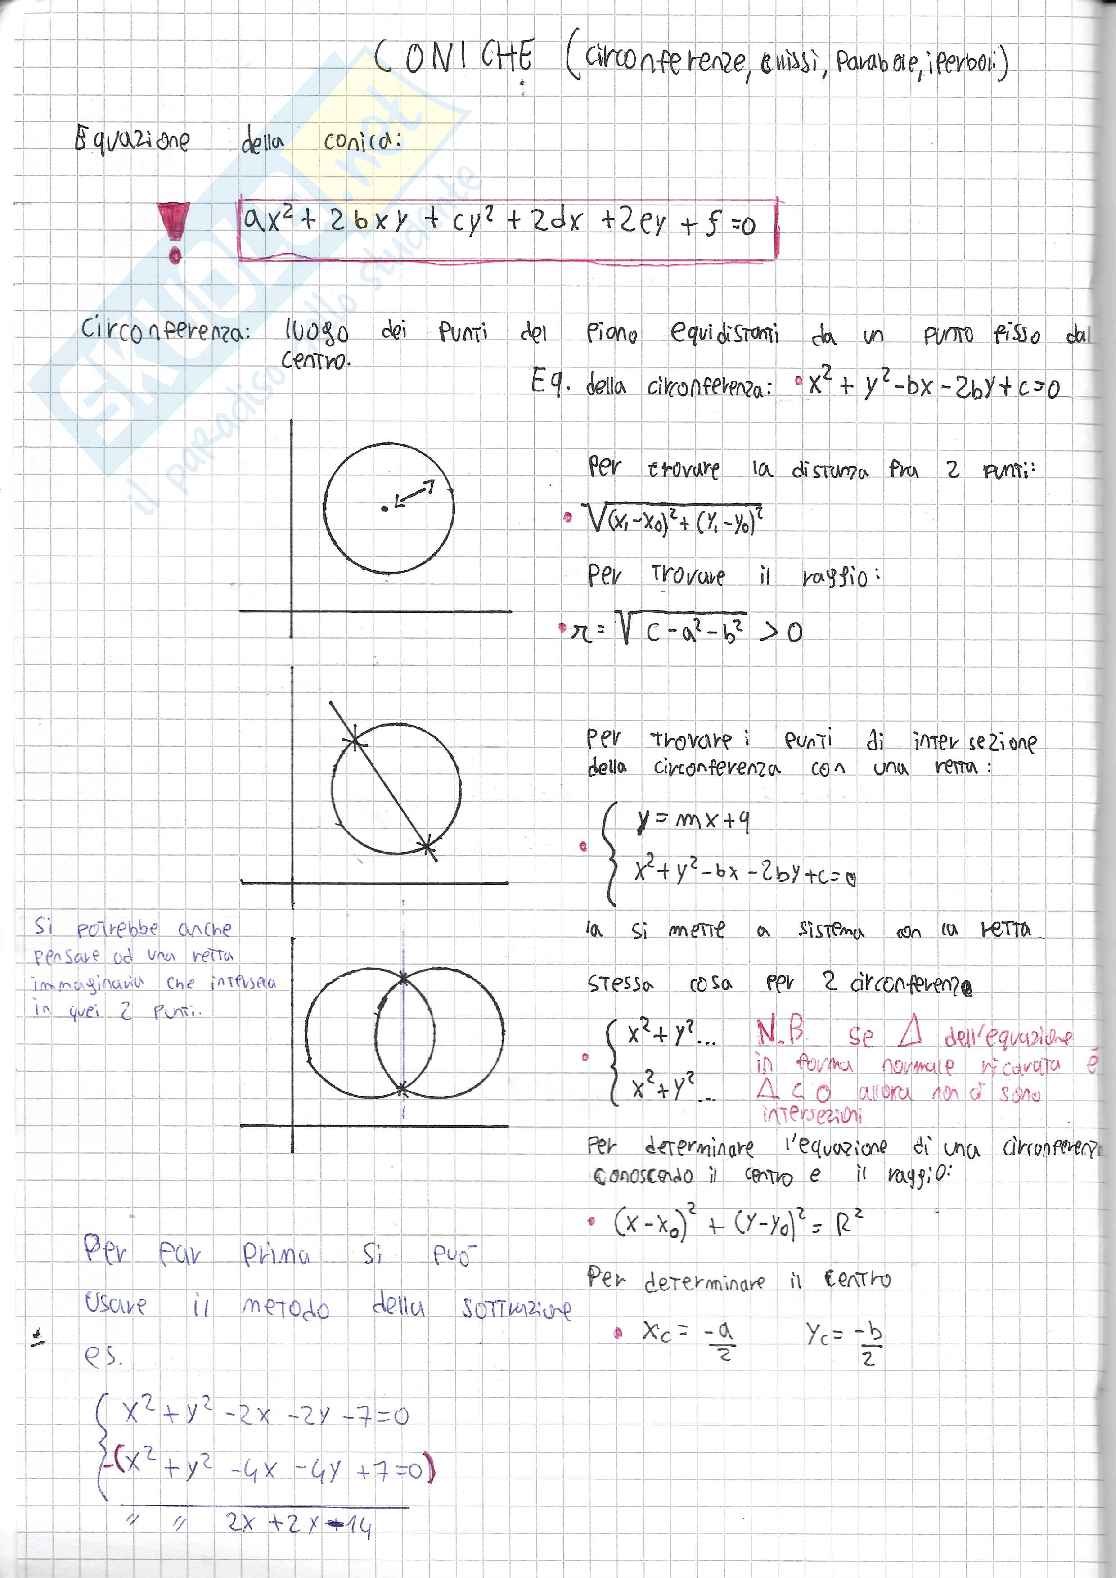 CONICHE (circonferenze, ellissi, parabole, iperboli)
Equazione della conica:
! ax² + 2bxy + cy² + 2dx + 2ey + f = 0
Circonferenza: luogo dei punti del piano equidistanti da un punto fisso dal
centro.
Eq. della circonferenza: • x² + y² - bx - 2by + c = 0
Per trovare la distanza fra 2 punti:
• √(x₁-x₀)² + (y₁-y₀)²
Per trovare il raggio:
• r = √c - a² - b² > 0
Per trovare i punti di intersezione
della circonferenza con una retta:
• { y = mx + q
x² + y² - bx - 2by + c = 0
la si mette a sistema con la retta
Si potrebbe anche
pensare ad una retta
immaginaria che interseca
in quei 2 punti.
stessa cosa per 2 circonferenze
• { x² + y² ...
x² + y² ...
N.B. se Δ dell'equazione
in forma normale ricavata è
Δ < 0 allora non ci sono
intersezioni
Per determinare l'equazione di una circonferenza
conoscendo il centro e il raggio:
• (x - x₀)² + (y - y₀)² = R²
Per determinare il centro
• xc = -a/2 yc = -b/2
Per far prima si può
usare il metodo della sottrazione
es.
{ x² + y² - 2x - 2y - 7 = 0
-(x² + y² - 4x - 4y + 7 = 0)
" " 2x + 2x - 14
SKUOLA.net
il paradiso dello studente